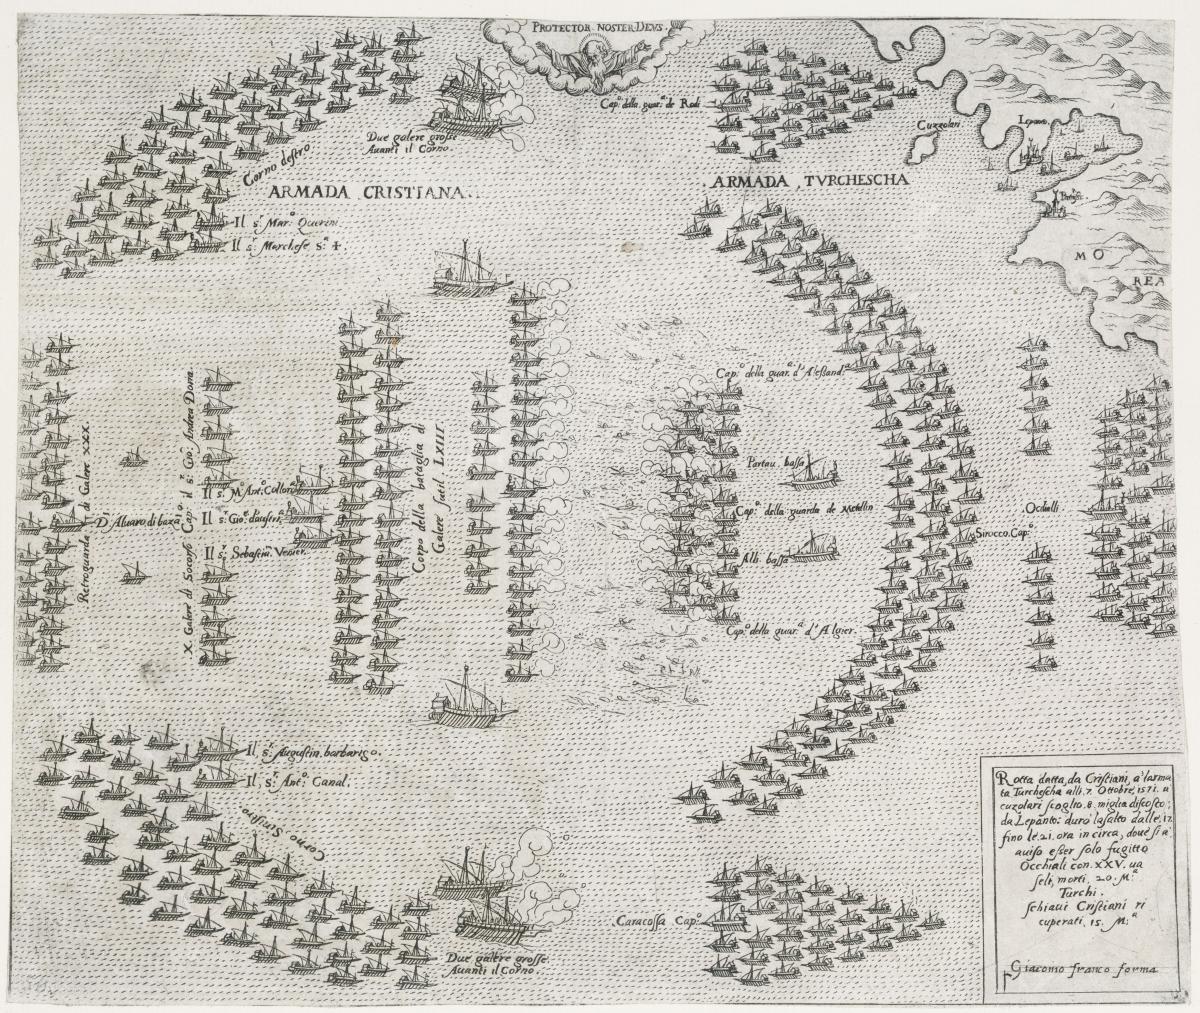 PROTECTOR NOSTER DEVS
Cap.º della guar.ª de Rodi
Due galere grosse
Auanti il Corno.
Cuzzolari
Lepanto
Corno destro
ARMADA CRISTIANA..
.ARMADA TVRCHESCHA
Il s.r Mar.º Querini
Il s.r Marchese s.ta +.
MO
REA
Cap.º della guar.ª d'Alessand.ª
Retroguarda di Galere XXX.
X Galere di Socorso Cap.º il s.r Gio: Andrea Doria
Corpo della bataglia di
Galere sotil LXIIII
Partau bassa
Il s.r M.º Ant.º Collona
D. Aluaro di bazan
Il s.r Gio: d'austria
Cap.º della guarda de Metellin
Ochialli
Sirocco Cap.º
Il s.r Sebastian Venier
Alli bassa
Cap.º della guar.ª d'Algier.
Il s.r Augustin barbarigo.
Il s.r Ant.º Canal.
Corno Sinistro
Rotta datta da Cristiani, a larma
ta Turchescha alli 7. Ottobre 1571. a
cuzolari scoglio .8. miglia discosto
da Lepanto: durò lasalto dalle 17
fino le .21. ora in circa, doue si a
auiso esser solo fugitto
Occhiali con. XXV. ua
seli, morti, 20. M.ª
Turchi.
schiaui Cristiani ri
cuperati, 15. M.ª
Giacomo franco forma
Caracossa Cap.º
Due galere grosse
Auanti il Corno.